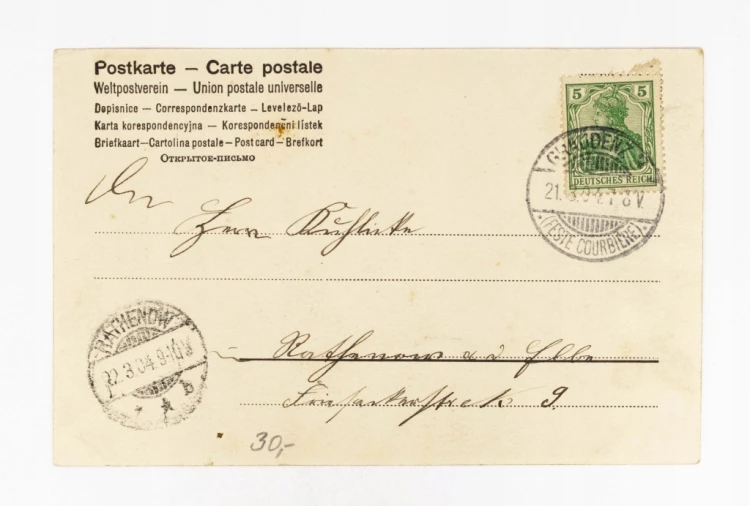 Postkarte — Carte postale
Weltpostverein — Union postale universelle
Dopisnice — Correspondenzkarte — Levelező-Lap
Karta korespondencyjna — Korespondenčni lístek
Briefkaart—Cartolina postale—Post card—Brefkort
Открытое-письмо
5 5
DEUTSCHES REICH
GRAUDENZ
21.3.04 7-8 V.
*(FESTE COURBIÈRE)*
An
Herrn Kuhlicke
RATHENOW
22.3.04.9-10V.
* b
Rathenow a d Elbe
9
30,-